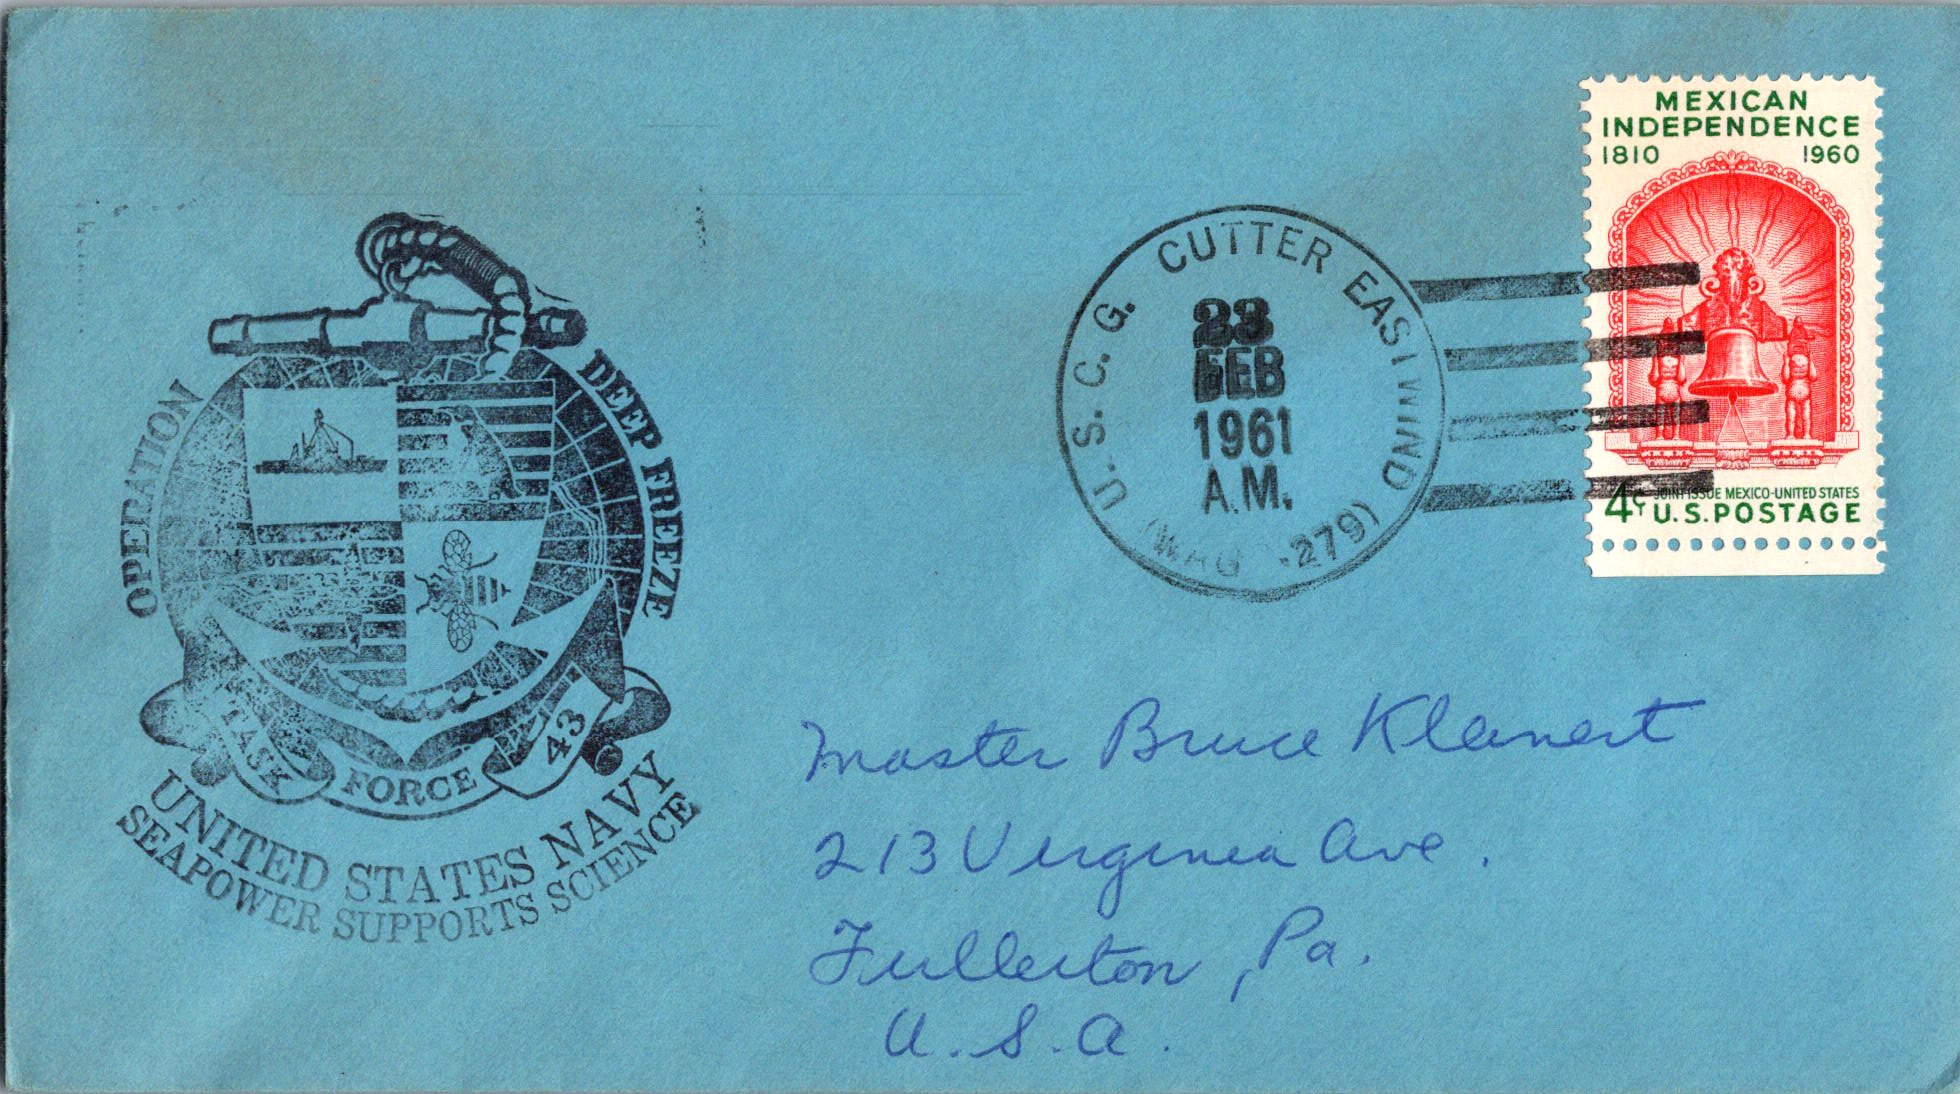 OPERATION DEEP FREEZE
TASK FORCE 43
UNITED STATES NAVY
SEAPOWER SUPPORTS SCIENCE
U. S. C. G. CUTTER EASTWIND
(WAG -279)
23
FEB
1961
A.M.
MEXICAN
INDEPENDENCE
1810 1960
4¢ JOINT ISSUE MEXICO-UNITED STATES
U.S. POSTAGE
Master Bruce Klanert
213 Virginia Ave.
Fullerton, Pa.
U.S.A.